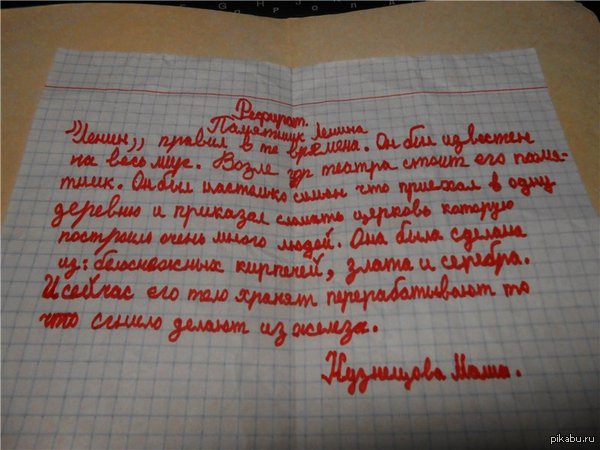 Рефират.
Памятник Ленина
"Ленин,, правил в те времена. Он был известен
на весь мир. Возле гдр театра стоит его памя-
тник. Он был настолко силён что приехал в одну
деревню и приказал сломать церковь которую
построило очень много людей. Она была сделана
из: белоснежных кирпечей, злата и серебра.
И сейчас его тело хранят перерабатывают то
что сгнило делают из железа.
Кузнецова Маша.
pikabu.ru